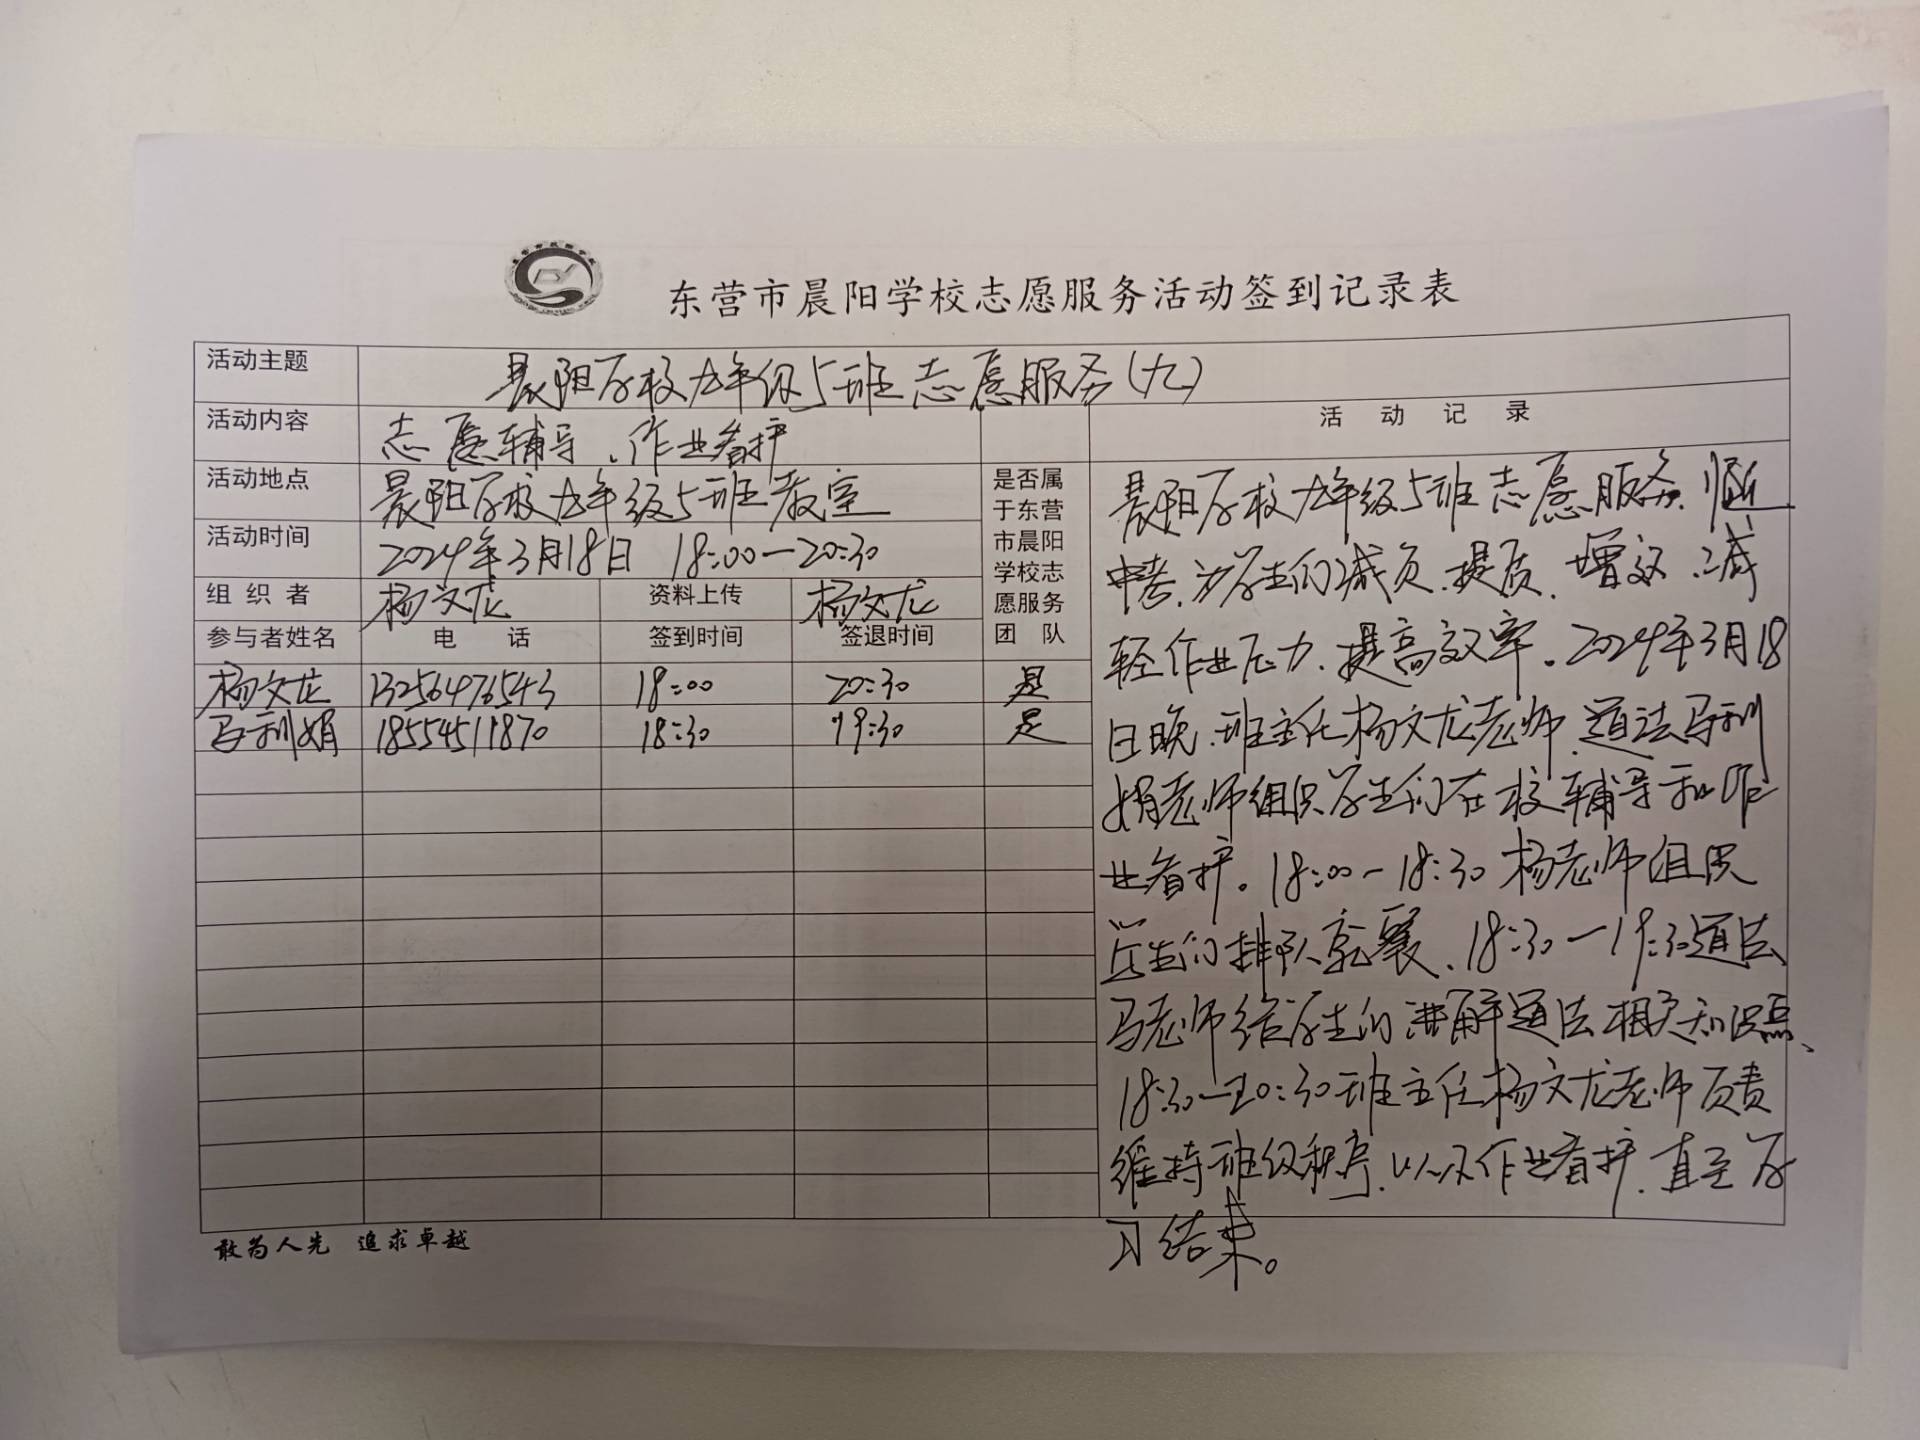 东营市晨阳学校志愿服务活动签到记录表
活动主题 晨阳学校九年级5班志愿服务(九)
活动内容 志愿辅导、作业看护
活动地点 晨阳学校九年级5班教室
活动时间 2024年3月18日 18:00—20:30
组织者 杨文龙 资料上传 杨文龙
参与者姓名 电话 签到时间 签退时间 是否属于东营市晨阳学校志愿服务团队
杨文龙 13256476543 18:00 20:30 是
马利娟 18554511870 18:30 19:30 是
活动记录
晨阳学校九年级5班志愿服务,临近
中考,为学生们减负、提质、增效、减
轻作业压力、提高效率。2024年3月18
日晚,班主任杨文龙老师、道法马利
娟老师组织学生们在校辅导和作
业看护。18:00—18:30杨老师组织
学生们排队就餐、18:30—19:30道法
马老师给学生们讲解道法相关知识点、
18:30—20:30班主任杨文龙老师负责
维持班级秩序,以及作业看护,直至学
习结束。
敢为人先 追求卓越